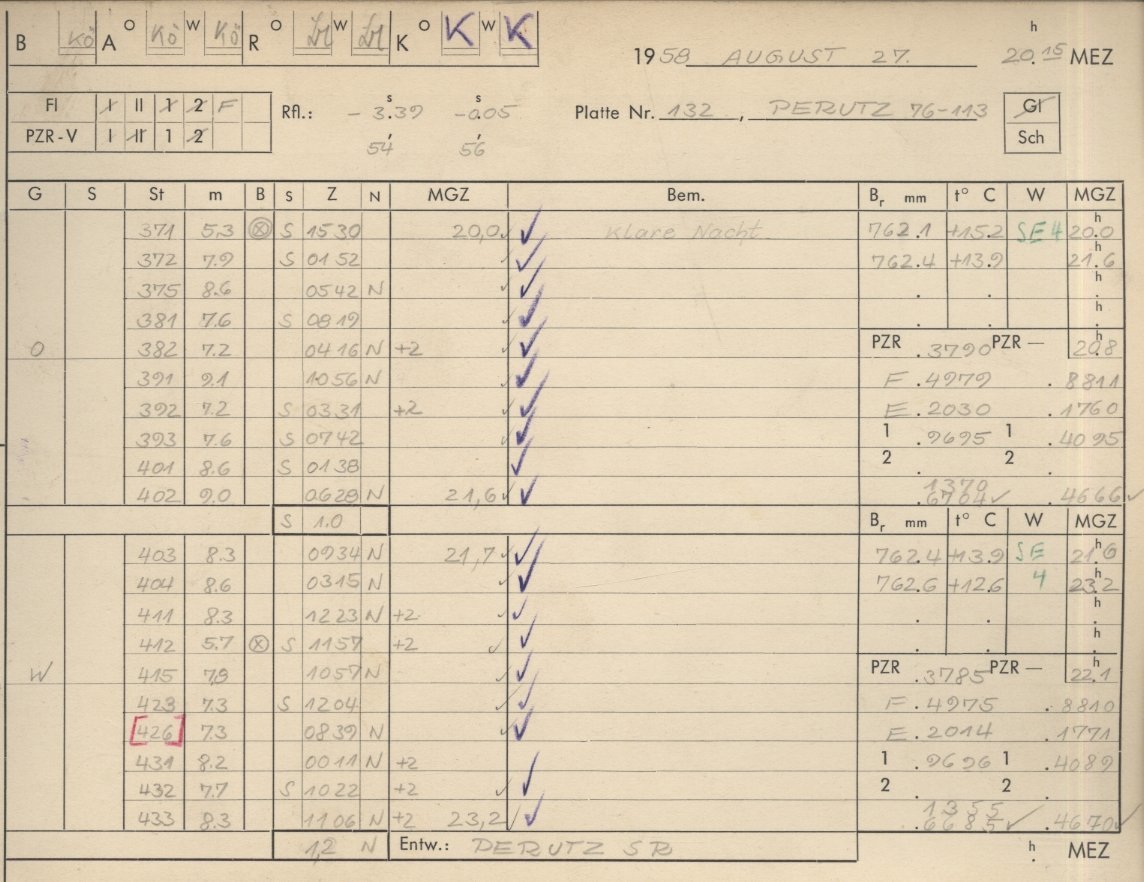 B Kö A O Kö W Kö R O W K O K W K
1958 AUGUST 27. 20.15 h MEZ
FI I II 1 2 F
PZR-V I II 1 2
Rfl.: - 3.39 s -0.05 s
54 56
Platte Nr. 132, PERUTZ 76-113
Gl
Sch
G S St m B S Z N MGZ Bem. Br mm t° C W MGZ
371 5.3 ⊗ S 1530 20,0 ✓ Klare Nacht 762.1 +15.2 SE 4 20.0 h
372 7.9 S 0152 ✓ 762.4 +13.9 21.6 h
375 8.6 0542 N ✓ . . . h
381 7.6 S 0819 ✓ . . . h
O 382 7.2 0416 N +2 ✓ PZR .3790 PZR — 20.8 h
391 9.1 1056 N ✓ F .4979 .8811
392 7.2 S 0331 +2 ✓ E .2030 .1760
393 7.6 S 0742 ✓ 1 .9695 1 .4095
401 8.6 S 0138 ✓ 2 . 2 .
402 9.0 0628 N 21,6 ✓ .1370
.6704 ✓ .4666 ✓
S 1.0 Br mm t° C W MGZ
403 8.3 0934 N 21,7 ✓ 762.4 +13.9 SE 21.6 h
404 8.6 0315 N ✓ 762.6 +12.6 4 23.2 h
411 8.3 1223 N +2 ✓ . . . h
412 5.7 ⊗ S 1157 +2 ✓ . . . h
W 415 7.9 1057 N ✓ PZR .3785 PZR — 22.1 h
423 7.3 S 1204 ✓ F .4975 .8810
[426] 7.3 0839 N ✓ E .2014 .1771
431 8.2 0011 N +2 1 .9696 1 .4089
432 7.7 S 1022 +2 ✓ 2 . 2 .
433 8.3 1106 N +2 23,2 ✓ .1355
.6685 ✓ .4670 ✓
1,2 N Entw.: PERUTZ SR h MEZ